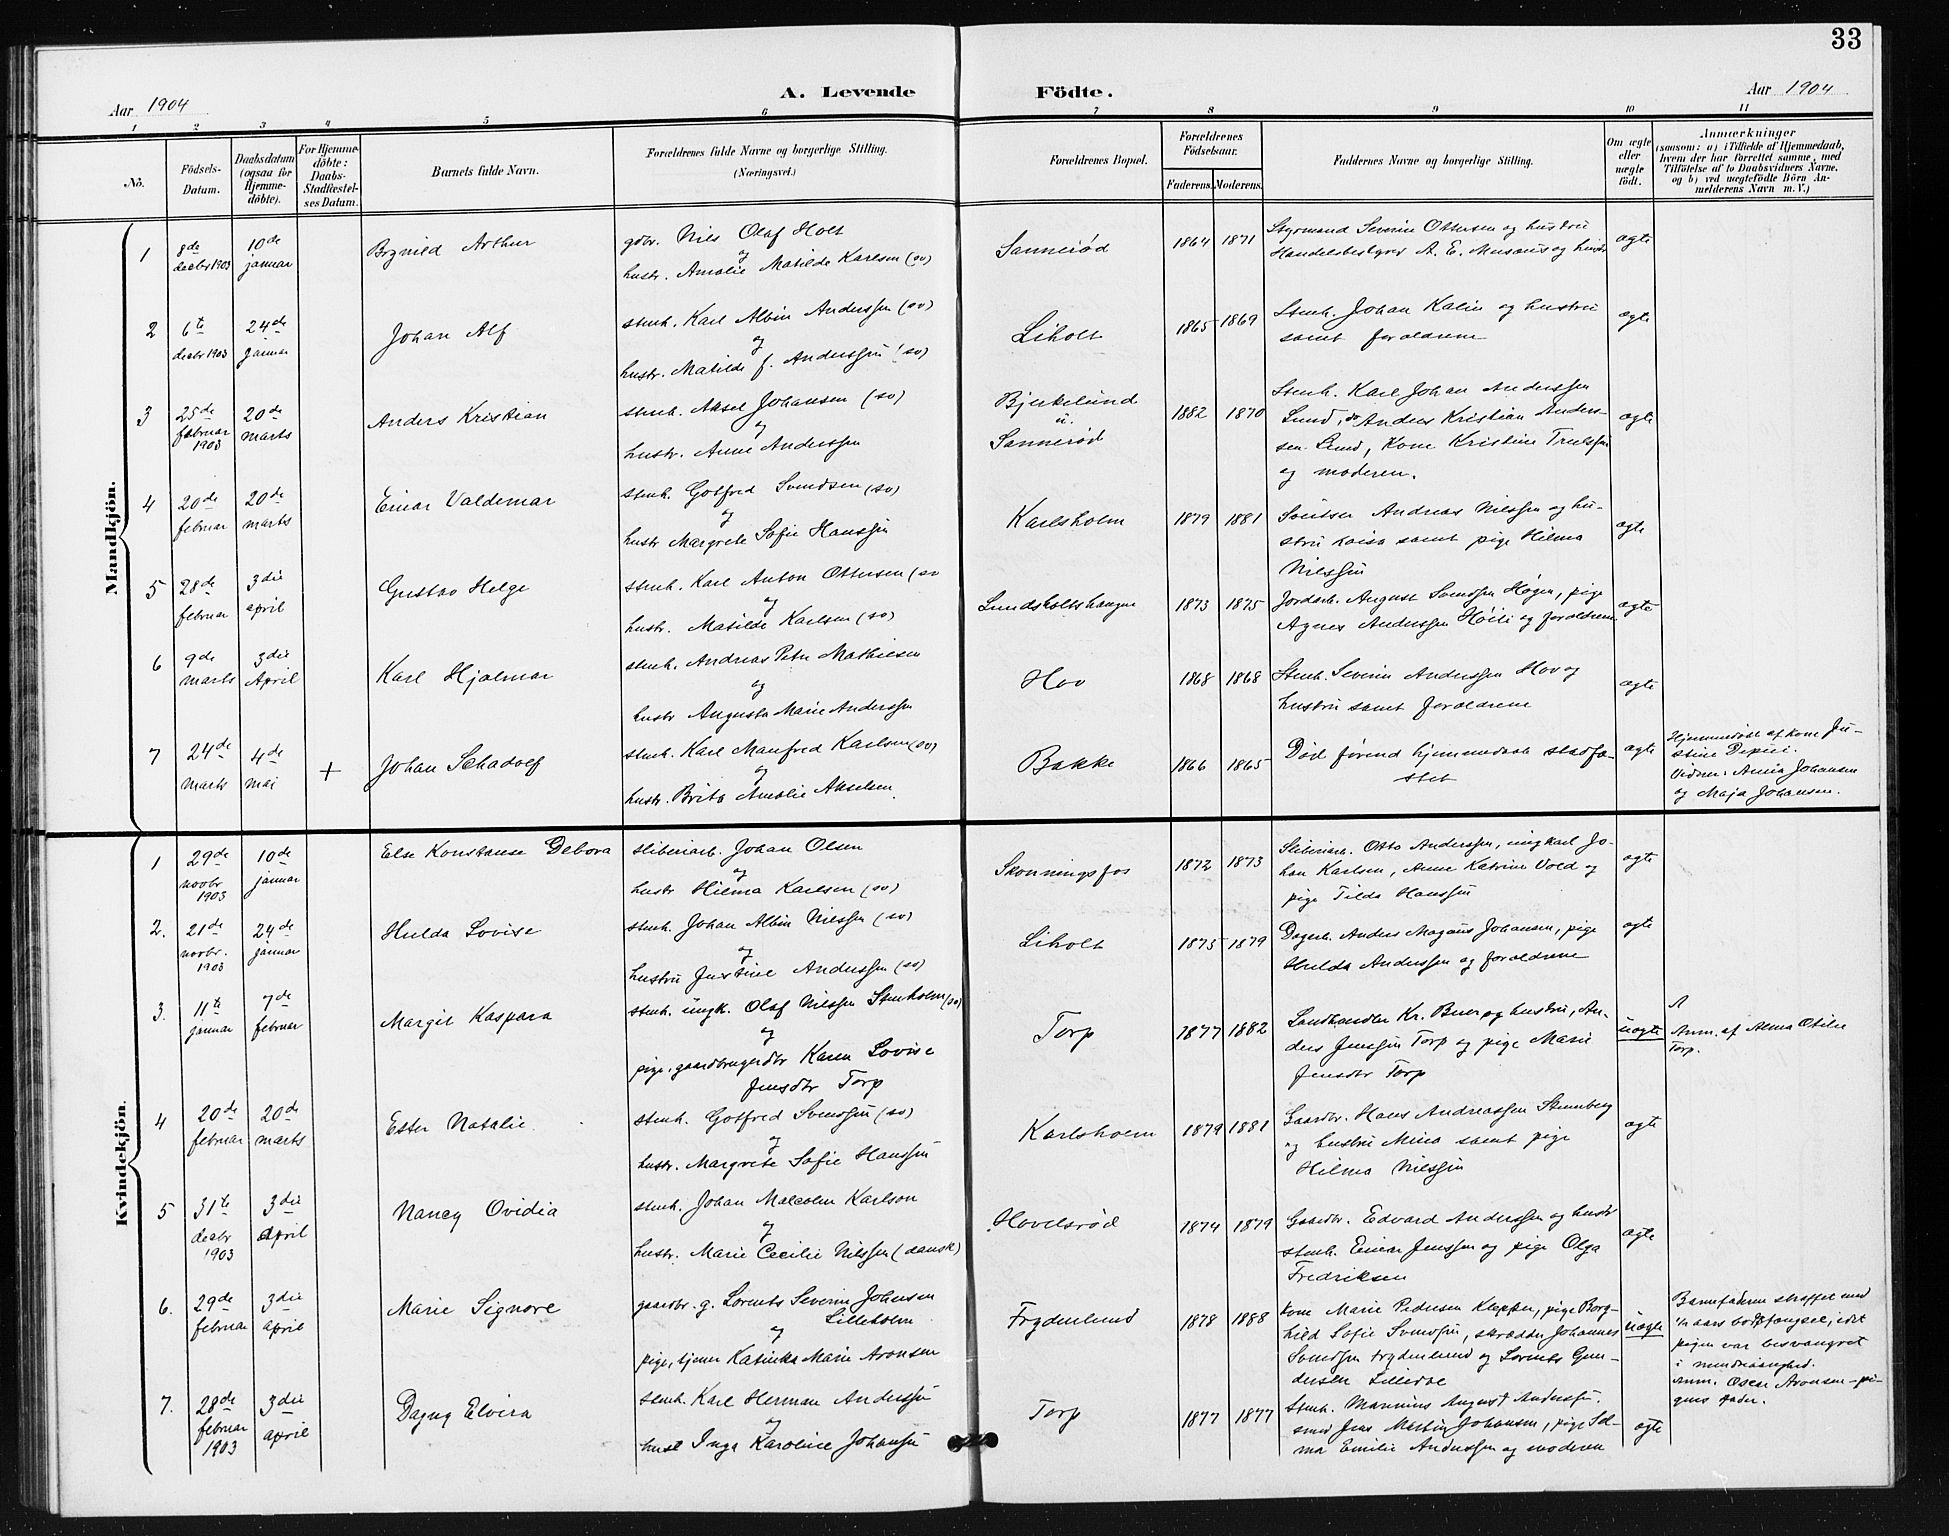 33
Aar 1904
A. Levende Födte.
Aar 1904
1 2 3 4 5 6 7 8 9 10 11
No.
Födsels-Datum.
Daabsdatum (ogsaa for Hjemme-döbte).
For Hjemme-döbte: Daabs-Stadfæstel-ses Datum.
Barnets fulde Navn.
Forældrenes fulde Navne og borgerlige Stilling. (Næringsvei.)
Forældrenes Bopæl.
Forældrenes Födselsaar.
Faderens. Moderens.
Faddernes Navne og borgerlige Stilling.
Om ægte eller uægte født.
Anmærkninger
(saasom: a) i Tilfælde af Hjemmedaab,
hvem der har forrettet samme, med
Tilføielse af to Daabsvidners Navne,
og b) ved uægtefödte Börn An-
melderens Navn m. V.)
Mandkjön.
1 8de decbr 1903 10de januar
Brynild Arthur
gdbr. Nils Olaf Holt
og
hustr. Amalie Matilde Karlsen (sv)
Sannerød 1864 1871
Styrmand Severin Ottersen og hustru
Handelsbestyrer A. E. Musæus og hustr
ægte
2 6te decbr 1903 24de januar
Johan Alf
stenh. Karl Albin Anderssen (sv)
og
hustr. Matilde f. Anderssen (sv)
Liholt 1865 1869
Stenh. Johan Kalin og hustru
samt forældrene
ægte
3 25de februar 1903 20de marts
Anders Kristian
stenh. Aksel Johansen (sv)
og
hustr. Anne Anderssen
Bjerkelund
u.
Sannerød
1882 1870
Stenh. Karl Johan Anderssen
Lund, do Anders Kristian Anders-
sen Lund, Kone Kristine Trulssen
og moderen.
ægte
4 20de februar 20de marts
Einar Valdemar
stenh. Gotfred Svendsen (sv)
og
hustr Margrete Sofie Hanssen
Karlsholm 1879 1881
Andreas Nilssen og hu-
stru Kaisa samt pige Hilma
Nilssen
ægte
5 28de februar 3die april
Gustav Helge
stenh. Karl Anton Ottersen (sv
og
hustr. Matilde Karlsen (sv)
Lundsholtshaugen 1873 1875
Jordarb. August Svenssen Høgen, pige
Agnes Anderssen Høili og forældrene
ægte
6 9de marts 3die April
Karl Hjalmar
stenh. Andreas Petr Mathiesen
og
hustr Augusta Marie Anderssen
Hov 1868 1868
Stenh. Severin Anderssen Hov og
hustru samt forældrene
ægte
7 24de marts 4de mai +
Johan Schadolf
stenh. Karl Manfred Karlsen (sv)
og
hustr. Brita Amalie Akselsen.
Bakke 1866 1865
Død førend hjemmedaab stadfæ-
stet
ægte
Hjemmedöbt af kone Ju-
stine
Vidner: Anna Johansen
og Maja Johansen.
Kvindekjön.
1 29de novbr 1903 10de januar
Else Konstanse Debora
sliberiarb. Johan Olsen
og
hustr Hilma Karlsen (sv)
Skonningsfos 1872 1873
Sliberiarb. Otto Anderssen, ungkarl Jo-
han Karlsen, Anne Katrine Vold og
pige Tilda Hanssen
ægte
2. 21de novbr. 1903 24de januar
Hulda Lovise
stenh. Johan Albin Nilssen (sv)
og
hustru Justine Anderssen (sv)
Liholt 1875 1879
Dagarb. Anders Magnus Johansen, pige
Hulda Anderssen og forældrene
ægte
3. 11te januar 7de februar
Margit Kaspara
stenh. ungk. Olaf Nilssen Stenholm (sv)
og
pige, gaardbrugerdtr Karen Lovise
Jensdtr Torp
Torp 1877 1882
Landhandler Kr. Buer og hustru, An-
ders Jenssen Torp og pige Marie
Jensdtr Torp
uægte
Anm. af Alma Otilie
Torp.
4 20de februar 20de marts
Ester Natalie
stenh. Gotfred Svenssen (sv)
og
hustr. Margrete Sofie Hanssen
Karlsholm 1879 1881
Gaardbr. Hans Andreassen Stenberg
og hustru Mina samt pige
Hilma Nilssen
ægte
5 31te decbr 1903 3die April
Nancy Ovidia
stenh. Johan Malcolm Karlson
og
hustr. Marie Cecilie Nilssen (dansk)
Hovelsrød 1874 1879
Gaardbr. Edvard Anderssen og hustr
stenh. Einar Jenssen og pige Olga
Fredriksen
ægte
6. 29de februar 3die april
Marie Signore
gaardbr. g. Lorents Severin Johansen
Lilleholm
og
pige, tjener Katinka Marie Aronsen
Frydenlund 1878 1888
kone Marie Pedersen Kleppen, pige Borg-
hild Sofie Svendsen, skrædder Johannes
Svendsen Frydenlund og Lorents Gun-
dersen Lilledal
uægte
Barnefaderen straffet med
aars bodsfængsel, idet
pigen var besvangret
i mindreaarighed.
Anm. Oscar Aronsen - pi-
gens fader.
7. 28de februar 1903 3die april
Dagny Elvira
stenh. Karl Herman Anderssen
og
hust Inga Karoline Johanssen
Torp 1877 1877
Stenh. Magnus August Anderssen.
smed Jens Martin Johansen, pige Sel-
ma Emilie Anderssen og moderen
ægte